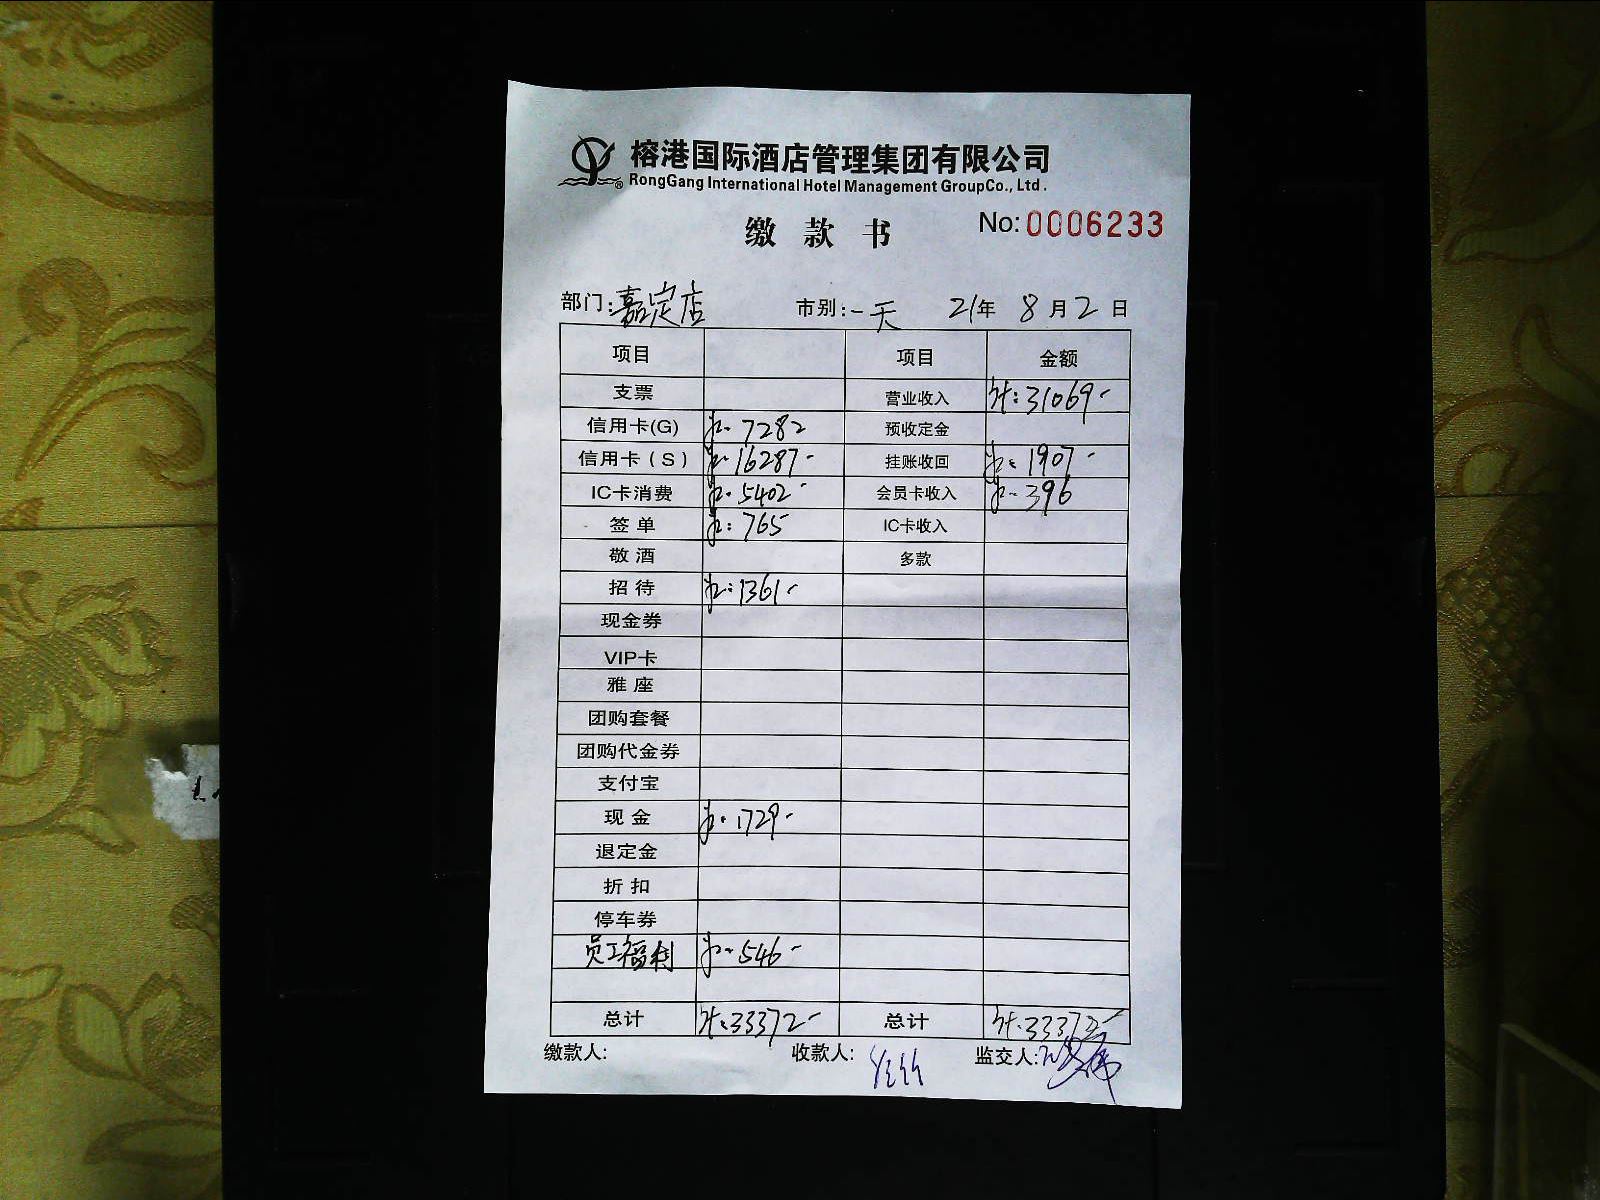 榕港国际酒店管理集团有限公司
RongGang International Hotel Management GroupCo., Ltd.
缴款书 No: 0006233
部门: 嘉定店 市别: 一天 21年 8月2日
项目 项目 金额
支票 营业收入 计: 31069-
信用卡(G) 7282 预收定金
信用卡(S) 16287- 挂账收回 1907-
IC卡消费 5402- 会员卡收入 396
签单 765 IC卡收入
敬酒 多款
招待 1361-
现金券
VIP卡
雅座
团购套餐
团购代金券
支付宝
现金 1729-
退定金
折扣
停车券
员工福利 546-
总计 计: 33372- 总计 计: 33372-
缴款人: 收款人: 监交人: